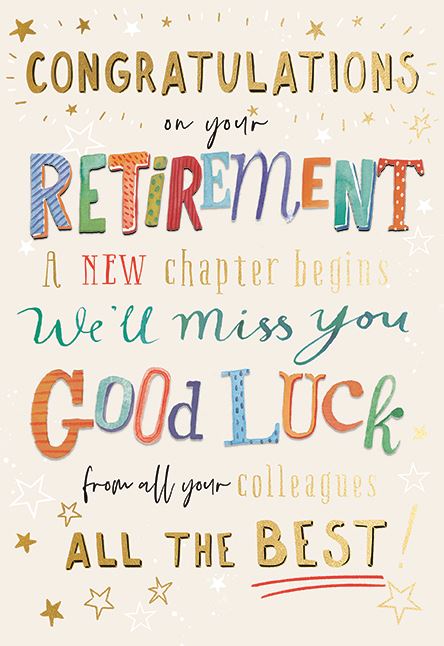 CONGRATULATIONS
on your
RETiREMENT
A NEW chapter begins
We'll miss you
GOOD LUCK
from all your colleagues
ALL THE BEST!